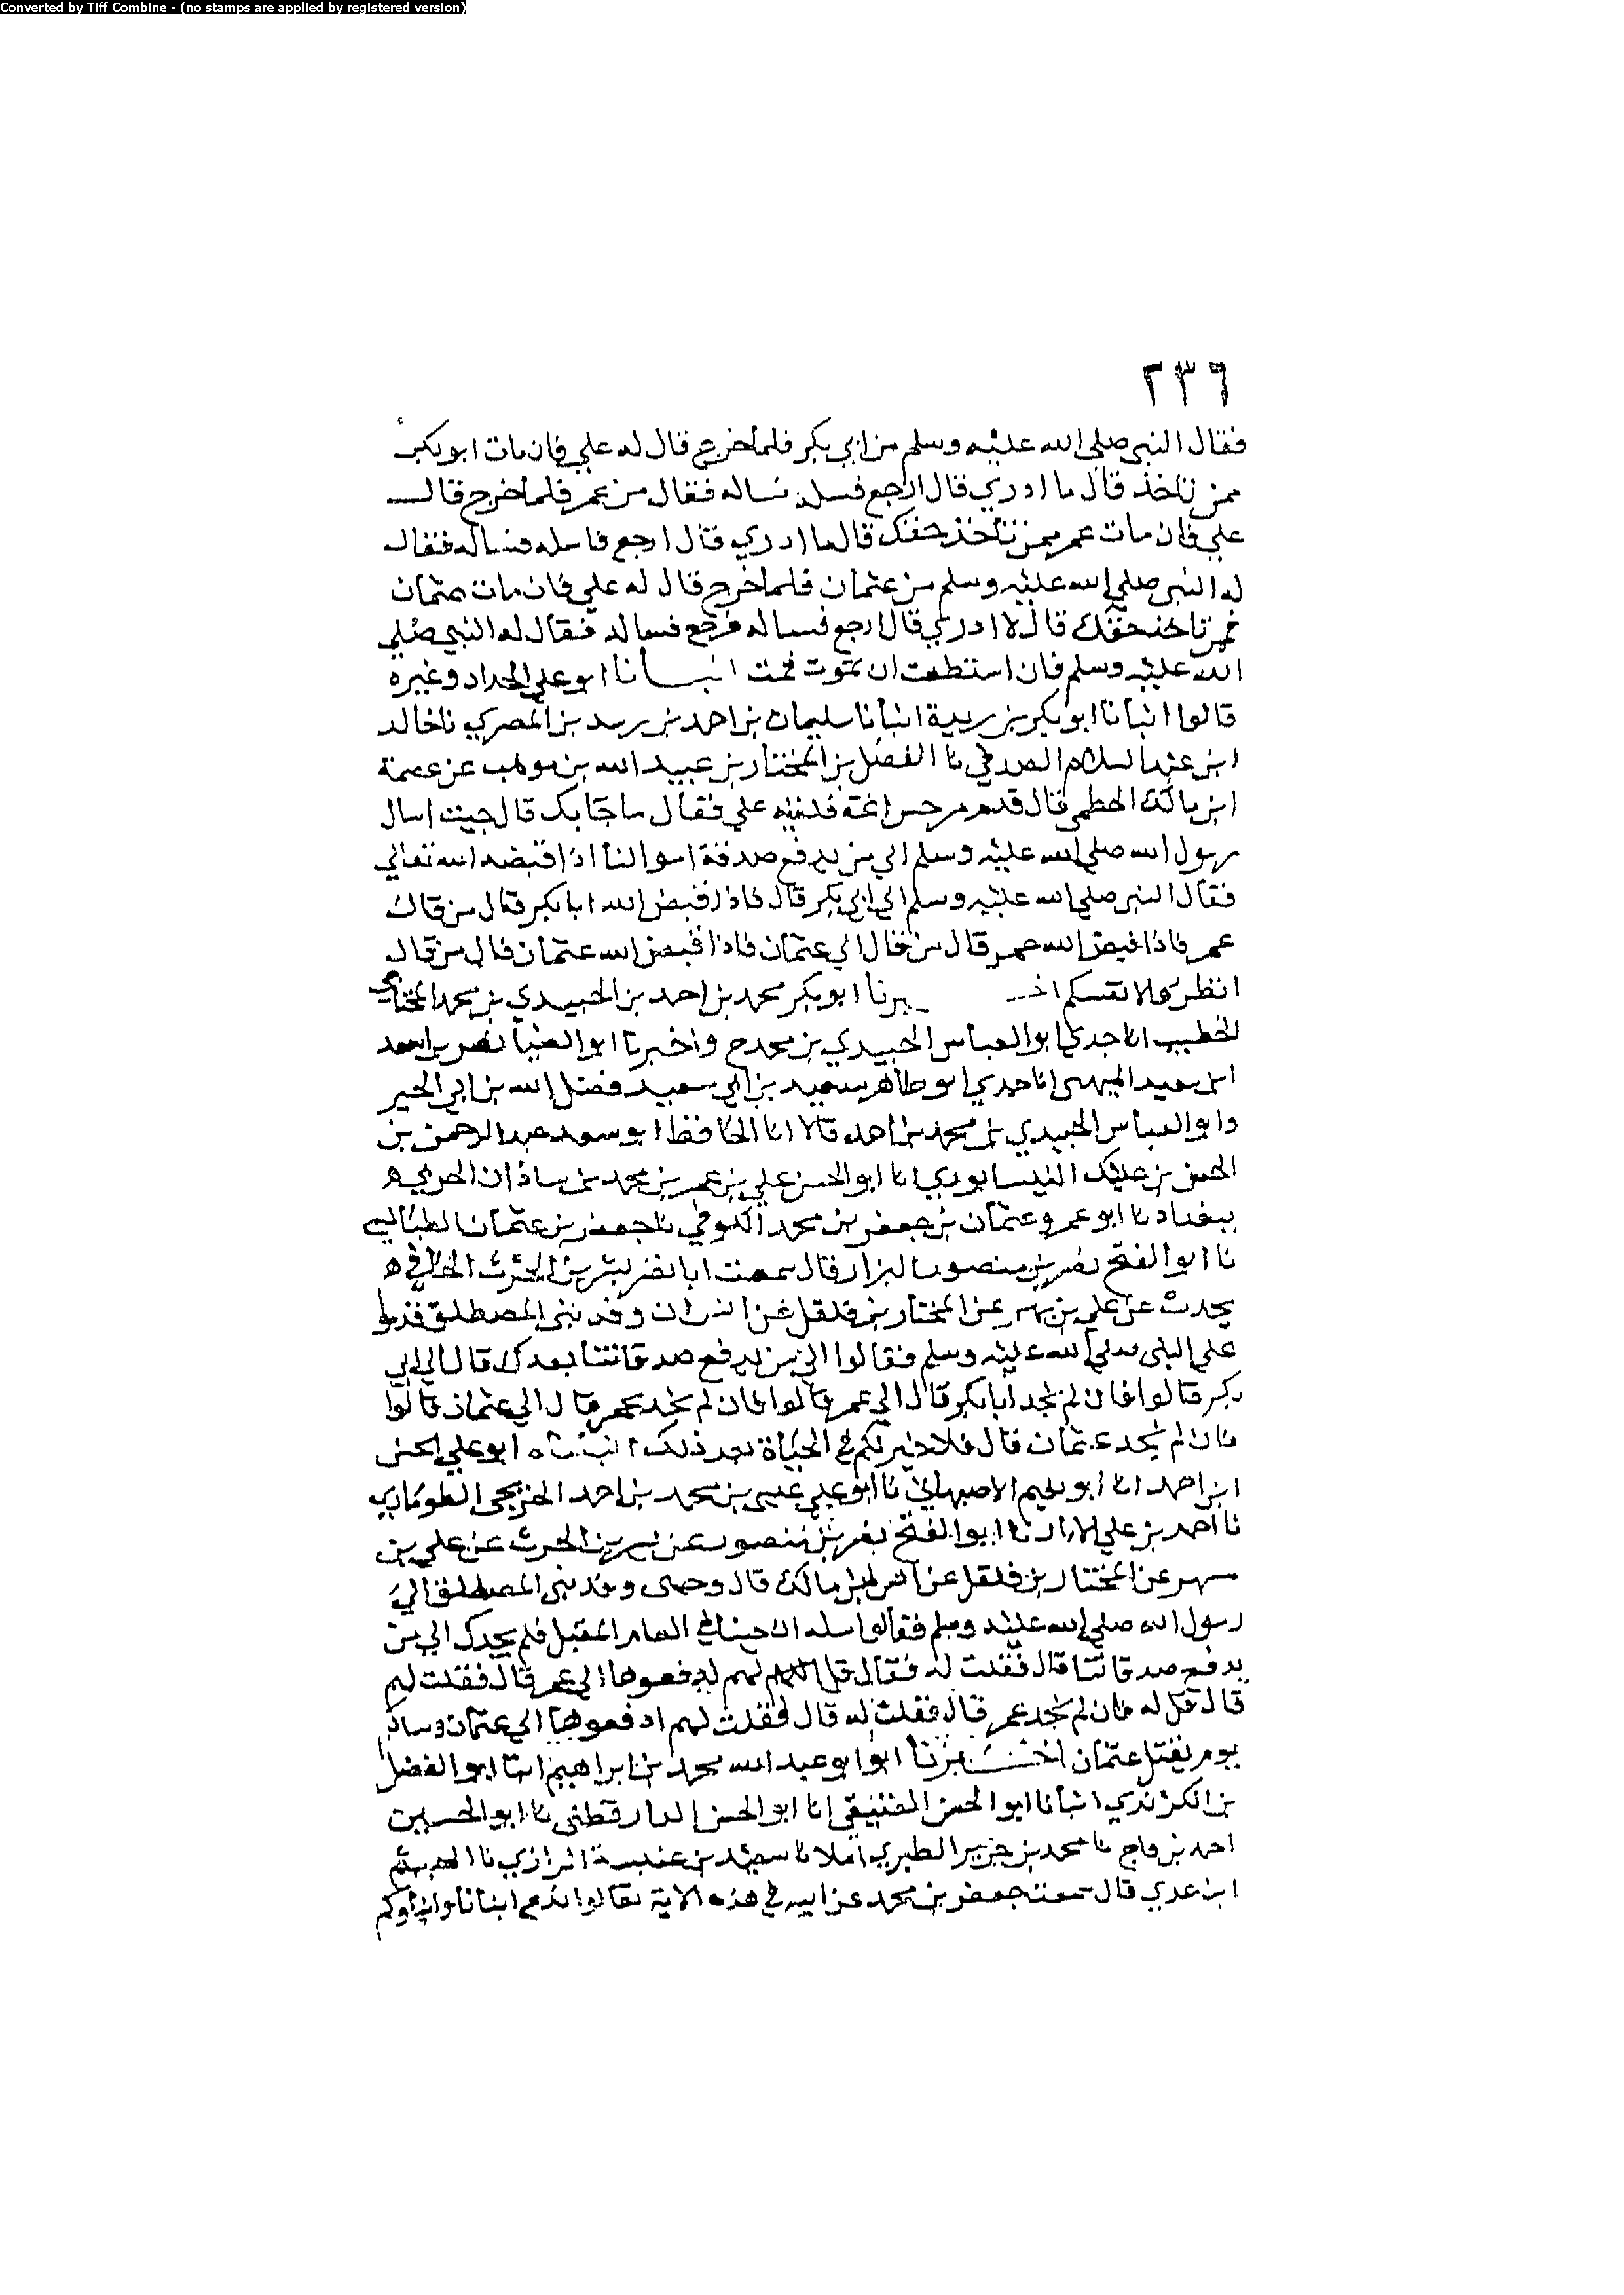 Converted by Tiff Combine - (no stamps are applied by registered version)
٢٣٦
فقال النبي صلى الله عليه وسلم من ابي بكر فلما خرج قال له علي فان مات ابو بكر
ممن تاخذ قال ما ادري قال ارجع فسله فساله فقال من عمر فلما خرج قال
علي فان مات عمر ممن تاخذ حقك قال ما ادري قال ارجع فاسله فساله فقال
له النبي صلى الله عليه وسلم من عثمان فلما خرج قال له علي فان مات عثمان
فمن تاخذ حقك قال لا ادري قال ارجع فساله فرجع فساله فقال له النبي صلي
الله عليه وسلم فان استطعت ان تموت فمت انبانا ابو علي الحداد وغيره
قالوا انبأنا ابو بكر بن ريدة انبأنا سليمان بن احمد بن رسد بن المصري نا خالد
ابن عبد السلام الصدفي نا الفضل بن المختار بن عبيد الله بن موهب عن عصمة
ابن مالك الخطمي قال قدم من خزاعة فلقيه علي فقال ما جا بك قال جيت اسال
رسول الله صلى الله عليه وسلم الي من يدفع صدقة اموالنا اذا قبضه الله تعالي
فقال النبي صلى الله عليه وسلم الى ابي بكر قال فاذا قبض الله ابا بكر قال من قال
عمر فاذا قبض الله عمر قال من قال الي عثمان فاذا قبض الله عثمان قال من قال
انظروا لانفسكم اخبرنا ابو بكر محمد بن احمد بن الجنيدي بن محمد
الخطيب انا جدي ابو العباس الجنيدي بن محمد ح واخبرنا ابو نصر بن اسعد
ابن سعيد الميهني انا جدي ابو طاهر سعيد بن ابي سعيد فضل الله بن ابي الخير
وابو العباس الجنيدي بن محمد بن احمد قالا انا الحافظ ابو سعد عبد الرحمن بن
الحسن بن عليك النيسابوري انا ابو الحسن علي بن عمر بن محمد بن شاذان الحربي
ببغداد نا ابو عمرو عثمان بن جعفر بن محمد الكوفي نا جعفر بن عثمان الطيالسي
نا ابو الفتح نصر بن منصور البزار قال سمعت ابا نصر بشر بن الحرث الحافي
يحدث عن علي بن مسهر عن المختار بن فلفل عن انس ان وفد بني المصطلق قدموا
علي النبي صلى الله عليه وسلم فقالوا الي من ندفع صدقاتنا بعدك قال الي ابي
بكر قالوا فان لم نجد ابا بكر قال الي عمر قالوا فان لم نجد عمر قال الي عثمان قالوا
فان لم نجد عثمان قال فلا خير لكم في الحياة بعد ذلك انبأنا ابو علي الحسن
ابن احمد انا ابو نعيم الاصبهاني نا ابو علي عيسى بن محمد بن احمد الجريجي الطوماري
نا احمد بن علي الابار نا ابو الفتح نصر بن منصور عن بشر بن الحرث عن علي بن
مسهر عن المختار بن فلفل عن انس بن مالك قال وجهني وفد بني المصطلق الي
رسول الله صلى الله عليه وسلم فقالوا سله ان جينا في العام المقبل فلم نجدك الي من
ندفع صدقاتنا قال فقلت له فقال قل لهم يدفعوها الي عمر قال فقلت لهم
قال قل له فان لم نجد عمر قال فقلت له قال فقلت لهم ادفعوها الي عثمان
يوم يقتل عثمان اخبرنا ابو ابو عبد الله محمد بن ابراهيم انا ابو الفضل
بن الكريدي انبأنا ابو الحسن العتيقي انا ابو الحسن الدارقطني نا ابو الحسين
احمد بن قاج نا محمد بن جرير الطبري املا نا سعيد بن عنبسة الرازي نا الهيثم
ابن عدي قال سمعت جعفر بن محمد عن ابيه في هذه الاية تعالوا ندع ابنانا وابناوكم